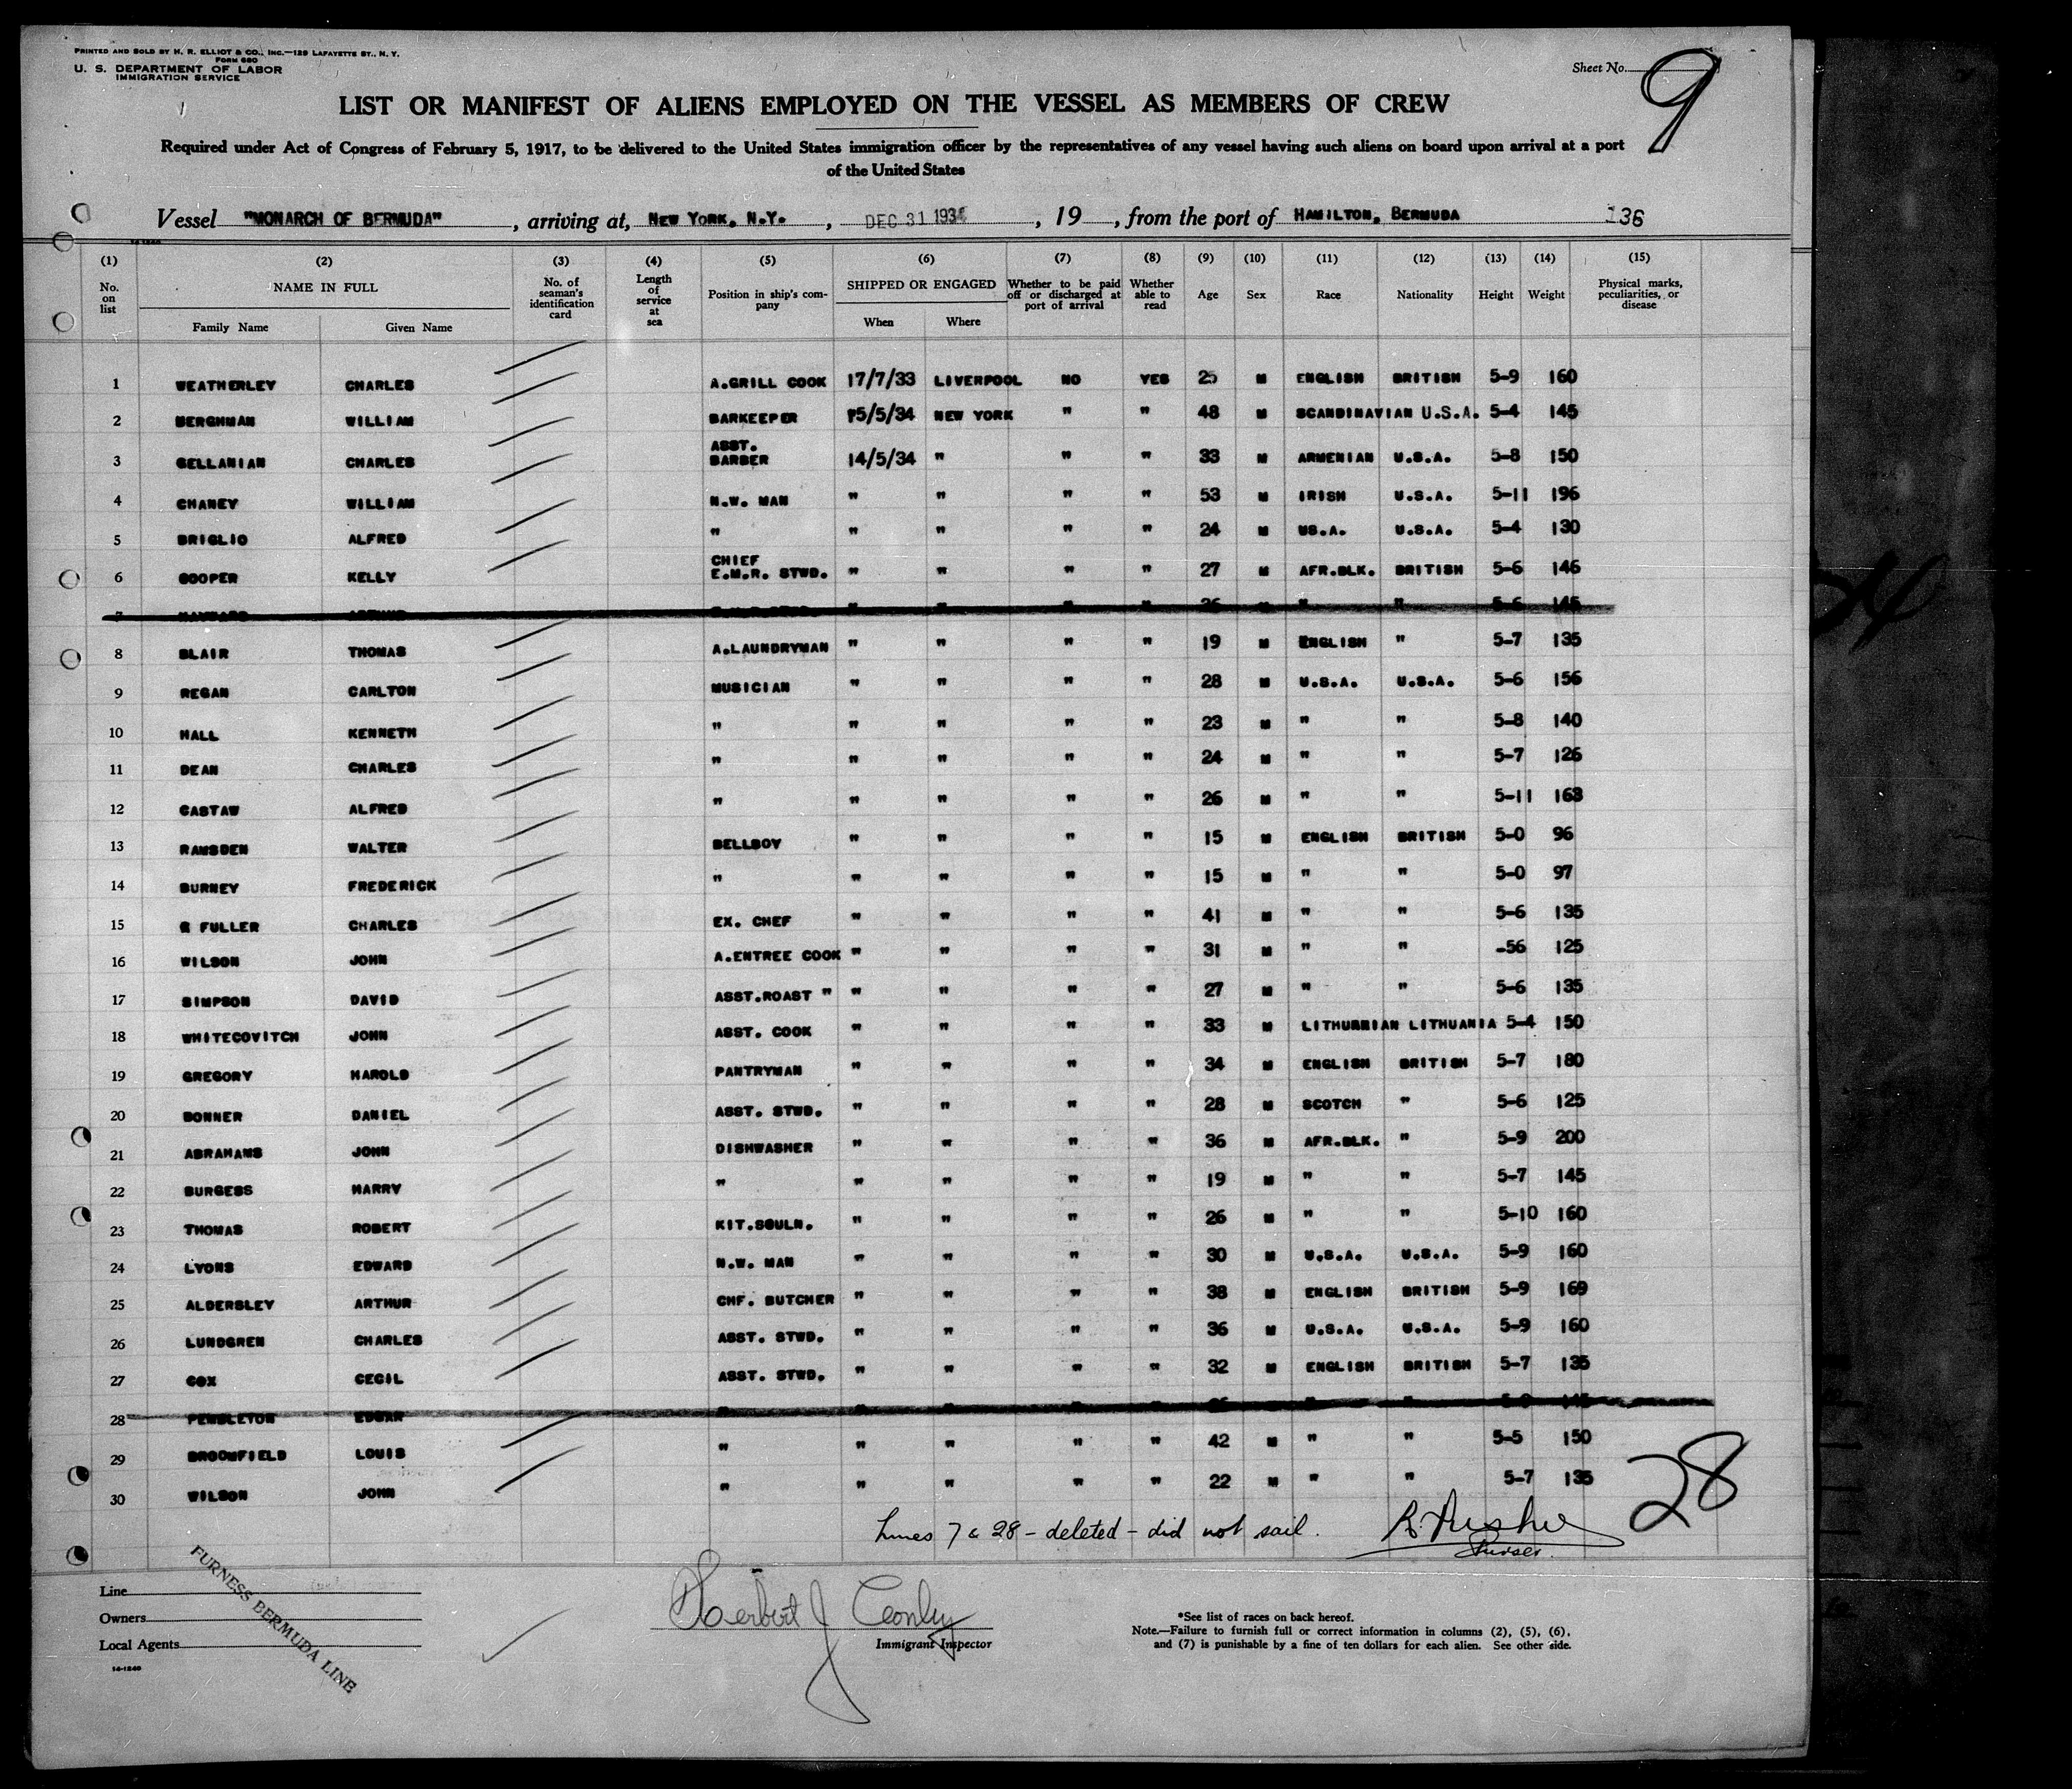 PRINTED AND SOLD BY H. R. ELLIOT & CO., INC.—129 LAFAYETTE ST., N. Y.
FORM 680
U. S. DEPARTMENT OF LABOR
IMMIGRATION SERVICE
Sheet No. 9
LIST OR MANIFEST OF ALIENS EMPLOYED ON THE VESSEL AS MEMBERS OF CREW
Required under Act of Congress of February 5, 1917, to be delivered to the United States immigration officer by the representatives of any vessel having such aliens on board upon arrival at a port
of the United States
Vessel "MONARCH OF BERMUDA", arriving at, NEW YORK, N.Y., DEC 31 1934, 19 , from the port of HAMILTON, BERMUDA 136
14-1240
(1) (2) (3) (4) (5) (6) (7) (8) (9) (10) (11) (12) (13) (14) (15)
No. on list NAME IN FULL Family Name Given Name No. of seaman's identification card Length of service at sea Position in ship's company SHIPPED OR ENGAGED When Where Whether to be paid off or discharged at port of arrival Whether able to read Age Sex Race Nationality Height Weight Physical marks, peculiarities, or disease
1 WEATHERLEY CHARLES A.GRILL COOK 17/7/33 LIVERPOOL NO YES 25 M ENGLISH BRITISH 5-9 160
2 BERGHMAN WILLIAM BARKEEPER 15/5/34 NEW YORK " " 48 M SCANDINAVIAN U.S.A. 5-4 145
3 GELLANIAN CHARLES ASST. BARBER 14/5/34 " " " 33 M ARMENIAN U.S.A. 5-8 150
4 CHANEY WILLIAM N.W. MAN " " " " 53 M IRISH U.S.A. 5-11 196
5 BRIGLIO ALFRED " " " " " 24 M US.A. U.S.A. 5-4 130
6 COOPER KELLY CHIEF E.M.R. STWD. " " " " 27 M AFR.BLK. BRITISH 5-6 146
7 " " " " 26 M " " 5-6 145
8 BLAIR THOMAS A.LAUNDRYMAN " " " " 19 M ENGLISH " 5-7 135
9 REGAN CARLTON MUSICIAN " " " " 28 M U.S.A. U.S.A. 5-6 156
10 HALL KENNETH " " " " " 23 M " " 5-8 140
11 DEAN CHARLES " " " " " 24 M " " 5-7 126
12 GASTAW ALFRED " " " " " 26 M " " 5-11 163
13 RAMSDEN WALTER BELLBOY " " " " 15 M ENGLISH BRITISH 5-0 96
14 BURNEY FREDERICK " " " " " 15 M " " 5-0 97
15 FULLER CHARLES EX. CHEF " " " " 41 M " " 5-6 135
16 WILSON JOHN A.ENTREE COOK " " " " 31 M " " -56 125
17 SIMPSON DAVID ASST.ROAST " " " " " 27 M " " 5-6 135
18 WHITECOVITCH JOHN ASST. COOK " " " " 33 M LITHUANIAN LITHUANIA 5-4 150
19 GREGORY HAROLD PANTRYMAN " " " " 34 M ENGLISH BRITISH 5-7 180
20 BONNER DANIEL ASST. STWD. " " " " 28 M SCOTCH " 5-6 125
21 ABRAHAMS JOHN DISHWASHER " " " " 36 M AFR.BLK. " 5-9 200
22 BURGESS HARRY " " " " " 19 M " " 5-7 145
23 THOMAS ROBERT KIT.SCULN. " " " " 26 M " " 5-10 160
24 LYONS EDWARD N.W. MAN " " " " 30 M U.S.A. U.S.A. 5-9 160
25 ALDERSLEY ARTHUR CHF. BUTCHER " " " " 38 M ENGLISH BRITISH 5-9 169
26 LUNDGREN CHARLES ASST. STWD. " " " " 36 M U.S.A. U.S.A. 5-9 160
27 COX CECIL ASST. STWD. " " " " 32 M ENGLISH BRITISH 5-7 135
28 PENDLETON EDGAR
29 BROOMFIELD LOUIS " " " " " 42 M " " 5-5 150
30 WILSON JOHN " " " " " 22 M " " 5-7 135
28
Lines 7 & 28 - deleted - did not sail.
Purser.
Line
Owners
Local Agents
FURNESS BERMUDA LINE
14-1240
Herbert J Conley
Immigrant Inspector
*See list of races on back hereof.
Note.—Failure to furnish full or correct information in columns (2), (5), (6),
and (7) is punishable by a fine of ten dollars for each alien. See other side.